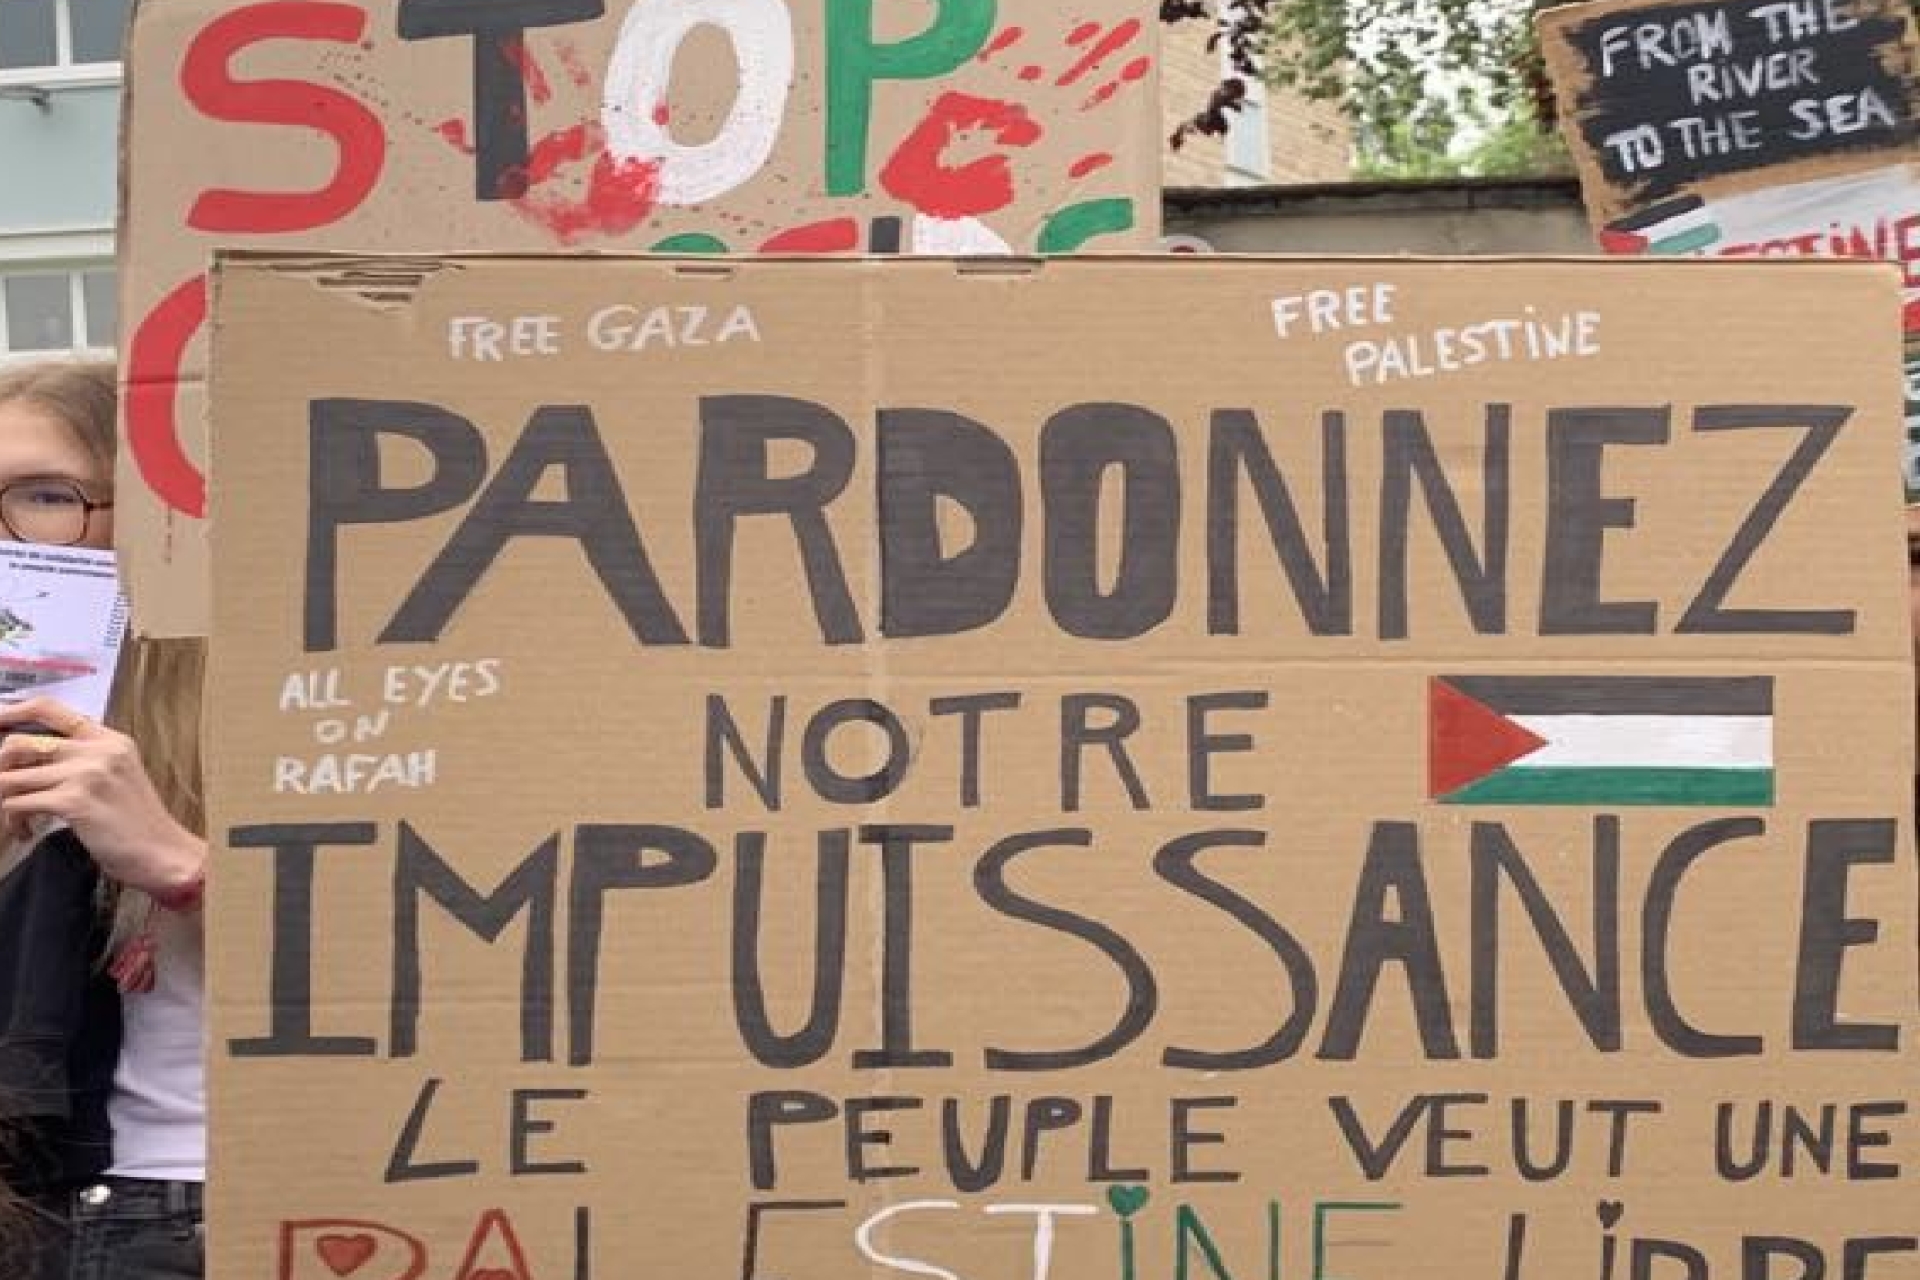 STOP
FROM THE
RIVER
TO THE SEA
FREE GAZA
FREE
PALESTINE
PARDONNEZ
ALL EYES
ON
RAFAH
NOTRE
IMPUISSANCE
LE PEUPLE VEUT UNE
PALESTINE LIBRE